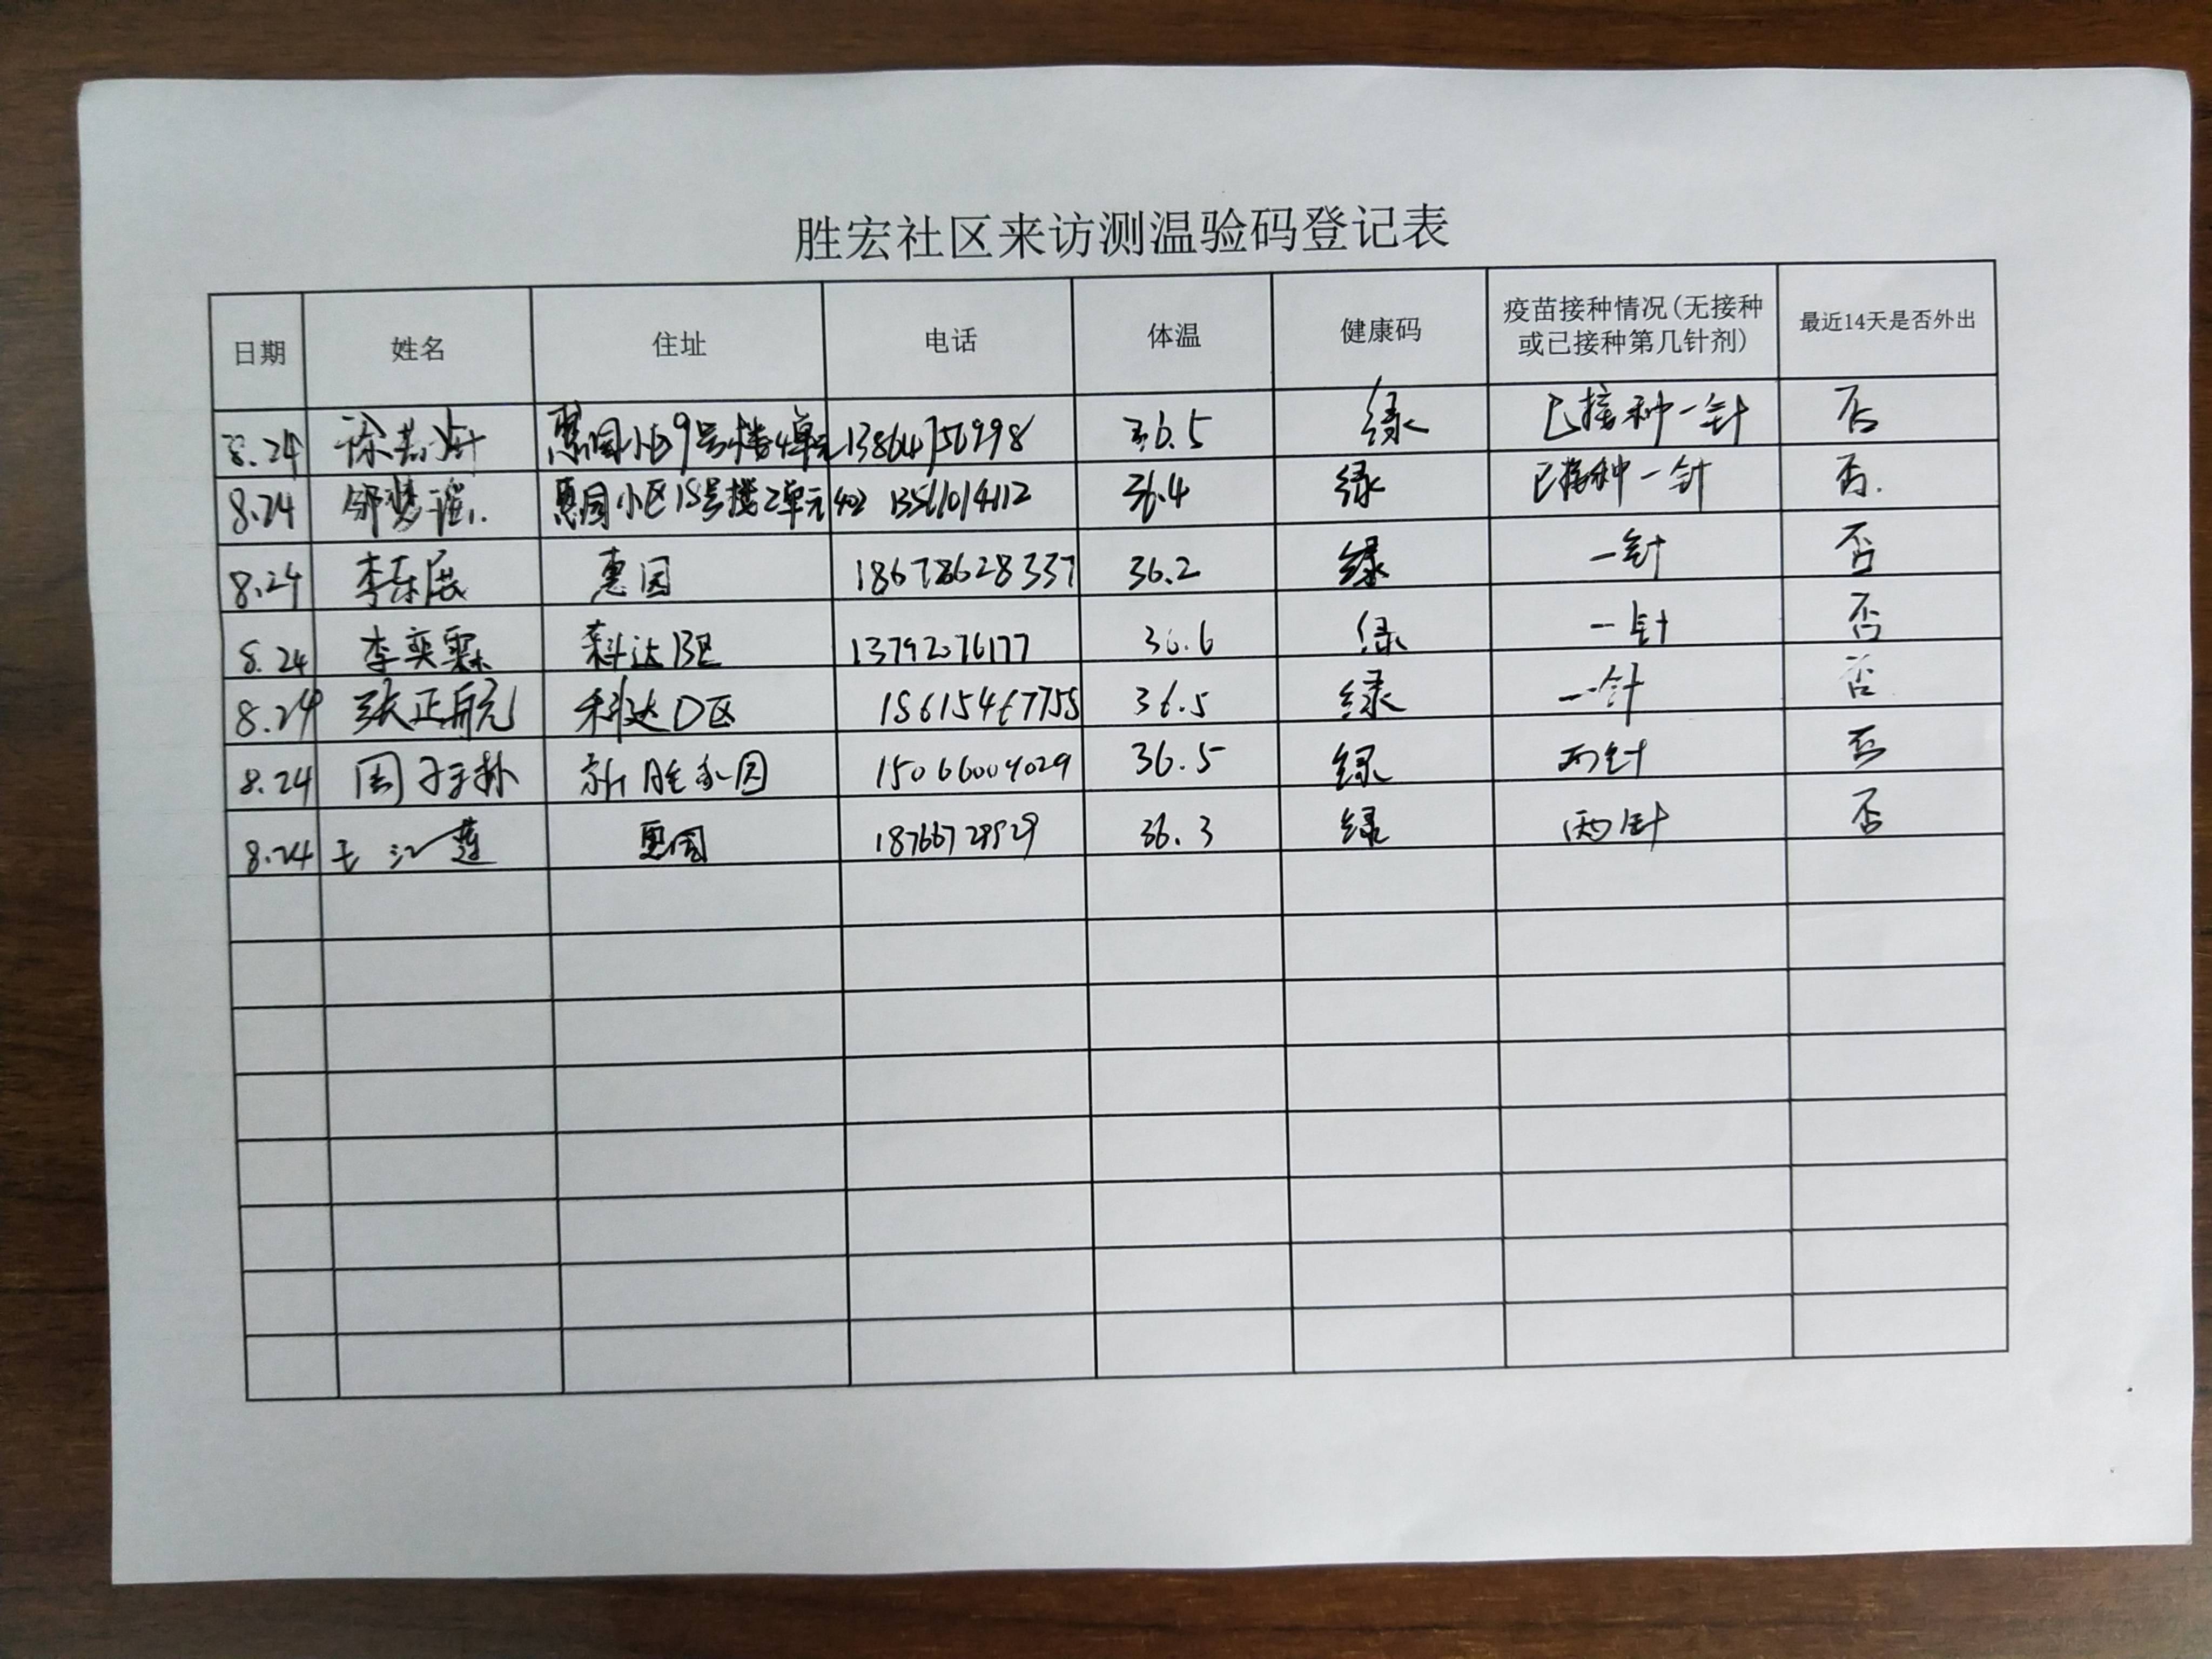 胜宏社区来访测温验码登记表
日期 姓名 住址 电话 体温 健康码 疫苗接种情况(无接种或已接种第几针剂) 最近14天是否外出
8.24 惠园小区9号楼4单元 36.5 绿 已接种一针 否
8.24 邹梦谣 惠园小区15号楼2单元402 36.4 绿 已接种一针 否.
8.24 李东辰 惠园 18678628337 36.2 绿 一针 否
8.24 李奕霖 科达B区 13792076177 36.6 绿 一针 否
8.24 张正航 科达D区 15615467755 36.5 绿 一针 否
8.24 周子扑 新胜家园 15066004029 36.5 绿 两针 否
8.24 王江莲 惠园 36.3 绿 两针 否